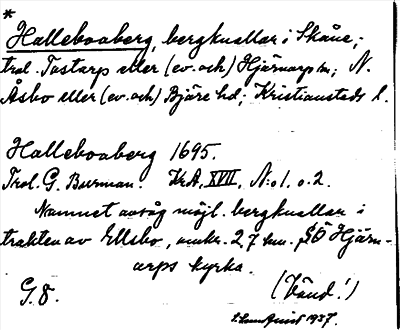 *
Halleboaberg, bergknallar i Skåne;
trol. Tostarp eller (ev. och) Hjärnarp sn; N.
Åsbo eller (ev. och) Bjäre hd; Kristianstads l.
Halleboaberg 1695.
Trol. G. Burman. Kr.A, XVII, N:o 1, o. 2.
Namnet avsåg möjl. bergknallar i
trakten av Ellsbo, omkr. 2,7 km. SÖ Hjärn-
arps kyrka.
G. 8. (Vänd!)
1937.